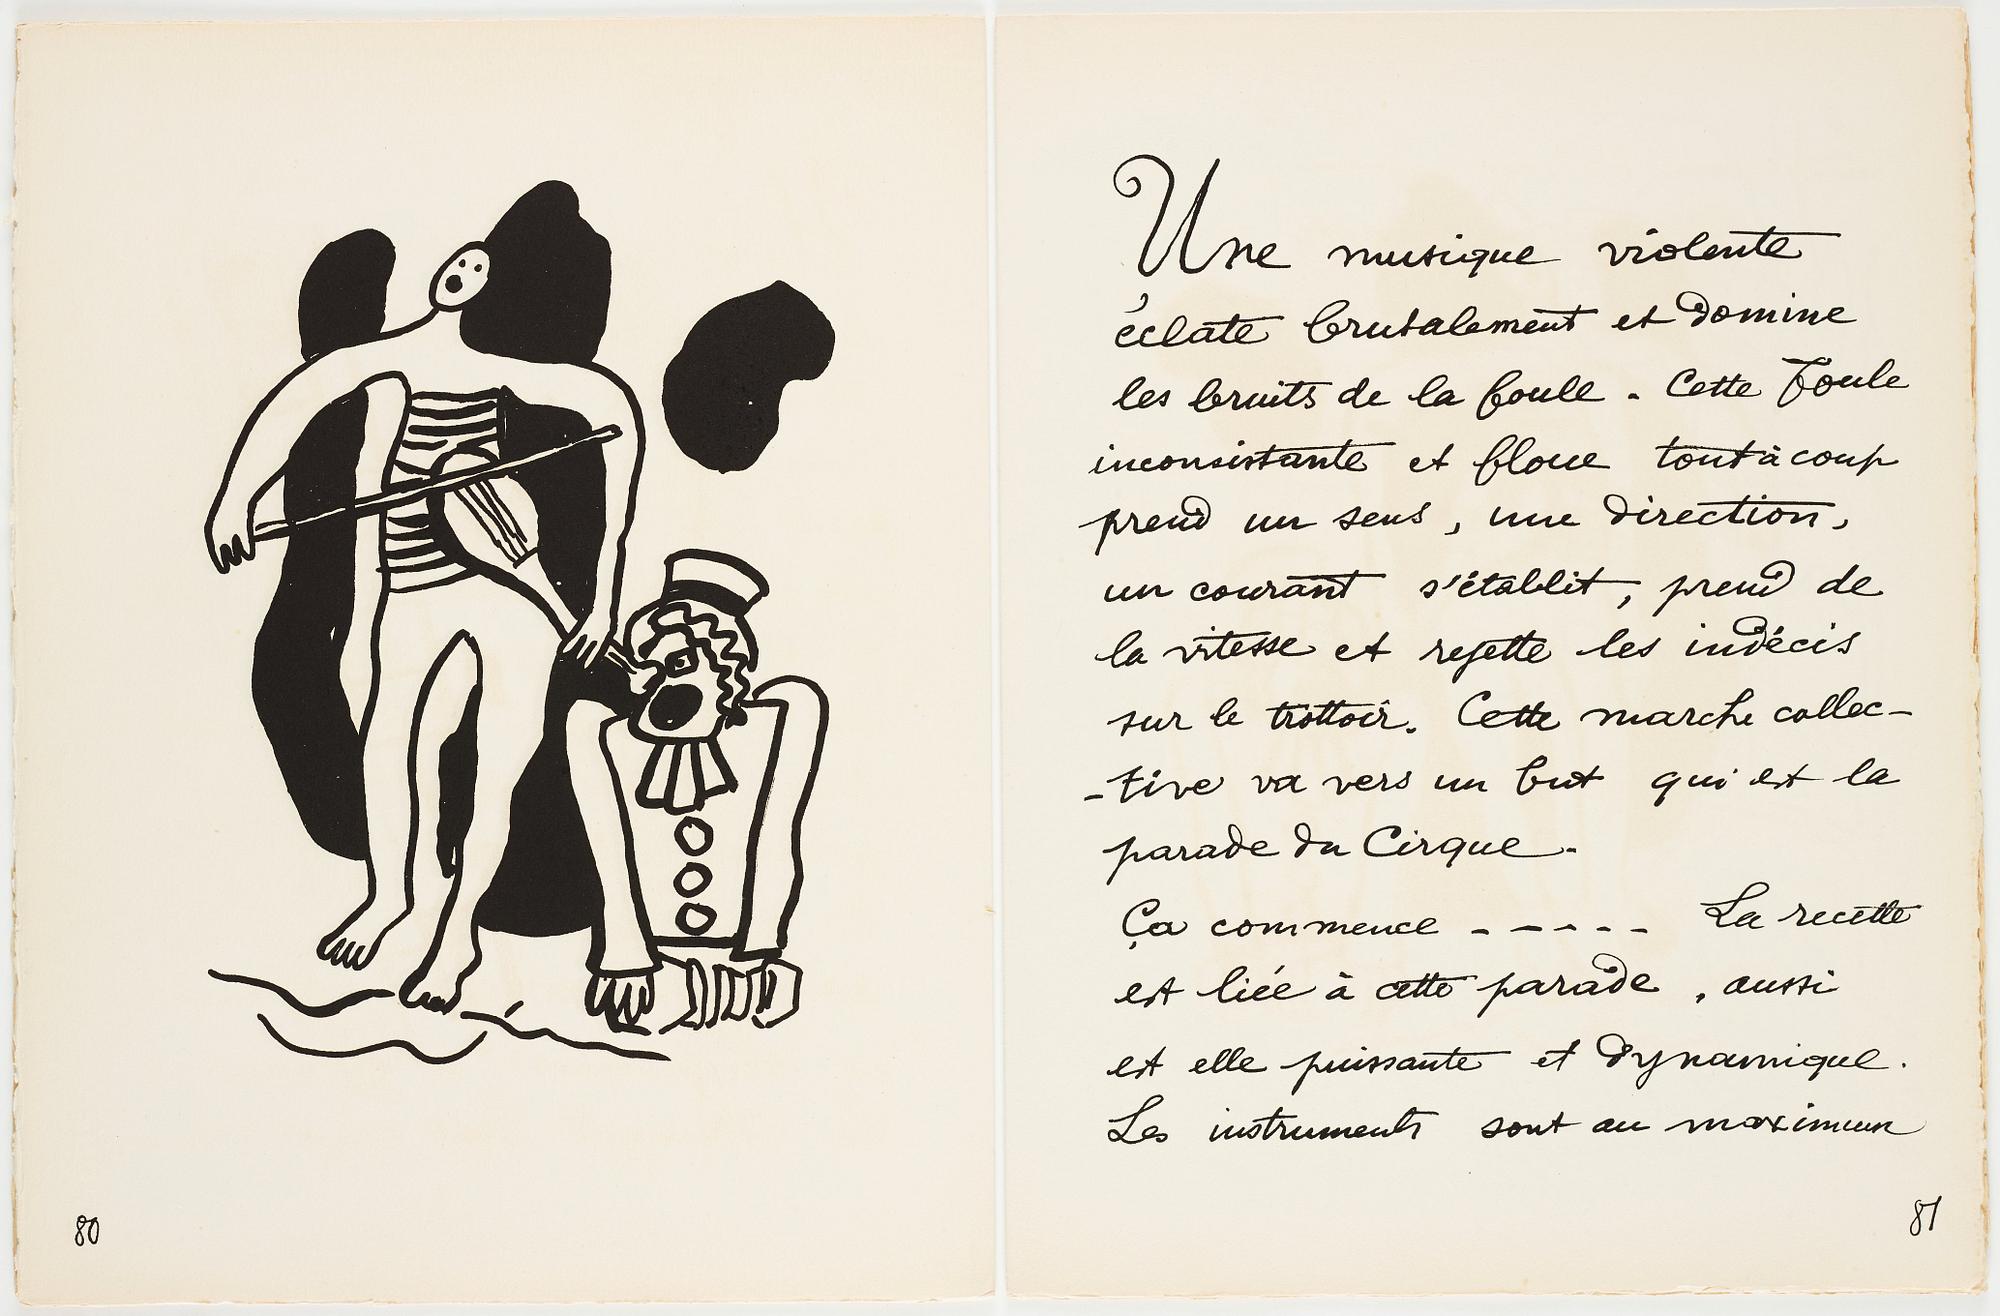 80
Une musique violente
éclate brutalement et domine
les bruits de la foule. Cette foule
inconsistante et floue tout à coup
prend un sens, une direction,
un courant s'établit, prend de
la vitesse et rejette les indécis
sur le trottoir. Cette marche collec-
-tive va vers un but qui est la
parade du Cirque.
Ça commence ----- La recette
est liée à cette parade, aussi
est elle puissante et dynamique.
Les instruments sont au maximum
81